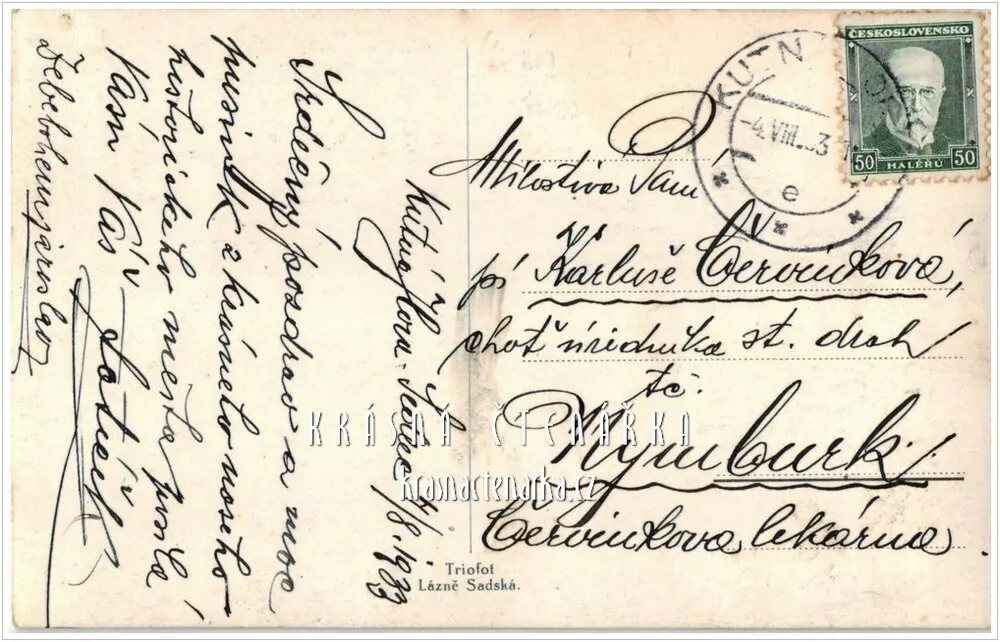 Kutná Hora-Sedlec 4/8. 1933
Srdečný pozdrav a moc
pusinek z krásného našeho
historického města posílá
Vám Váš
ČESKOSLOVENSKO
50 HALÉŘŮ 50
KUTN HORA
-4.VIII.33
e
Milostivá Paní
pí Karluše Červinková,
choť úředníka st. drah
tč.
Nymburk.
Červinkova lékárna.
KRÁSNÁ ČTENÁŘKA
krasnactenarka.cz
Triofot
Lázně Sadská.